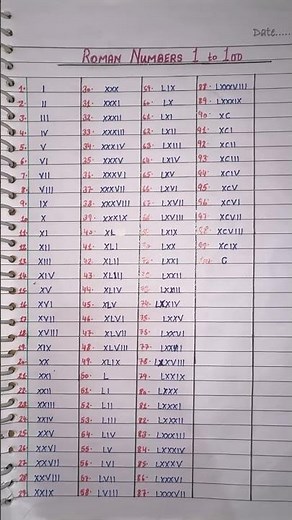 Date.....
ROMAN NUMBERS 1 to 100
1- I
2- II
3- III
4- IV
5- V
6- VI
7- VII
8- VIII
9- IX
10- X
11- XI
12- XII
13- XIII
14- XIV
15- XV
16- XVI
17- XVII
18- XVIII
19- XIX
20- XX
21- XXI
22- XXII
23- XXIII
24- XXIV
25- XXV
26- XXVI
27- XXVII
28- XXVIII
29- XXIX
30- XXX
31- XXXI
32- XXXII
33- XXXIII
34- XXXIV
35- XXXV
36- XXXVI
37- XXXVII
38- XXXVIII
39- XXXIX
40- XL
41- XLI
42- XLII
43- XLIII
44- XLIV
45- XLV
46- XLVI
47- XLVII
48- XLVIII
49- XLIX
50- L
51- LI
52- LII
53- LIII
54- LIV
55- LV
56- LVI
57- LVII
58- LVIII
59- LIX
60- LX
61- LXI
62- LXII
63- LXIII
64- LXIV
65- LXV
66- LXVI
67- LXVII
68- LXVIII
LXIX
LXX
LXXI
LXXII
LXXIII
74- LXXIV
75- LXXV
76- LXXVI
77- LXXVII
78- LXXVIII
79- LXXIX
80- LXXX
81- LXXXI
82- LXXXII
83- LXXXIII
84- LXXXIV
85- LXXXV
86- LXXXVI
87- LXXXVII
88- LXXXVIII
89- LXXXIX
90- XC
91- XCI
92- XCII
93- XCIII
94- XCIV
95- XCV
96- XCVI
97- XCVII
98- XCVIII
99- XCIX
100- C